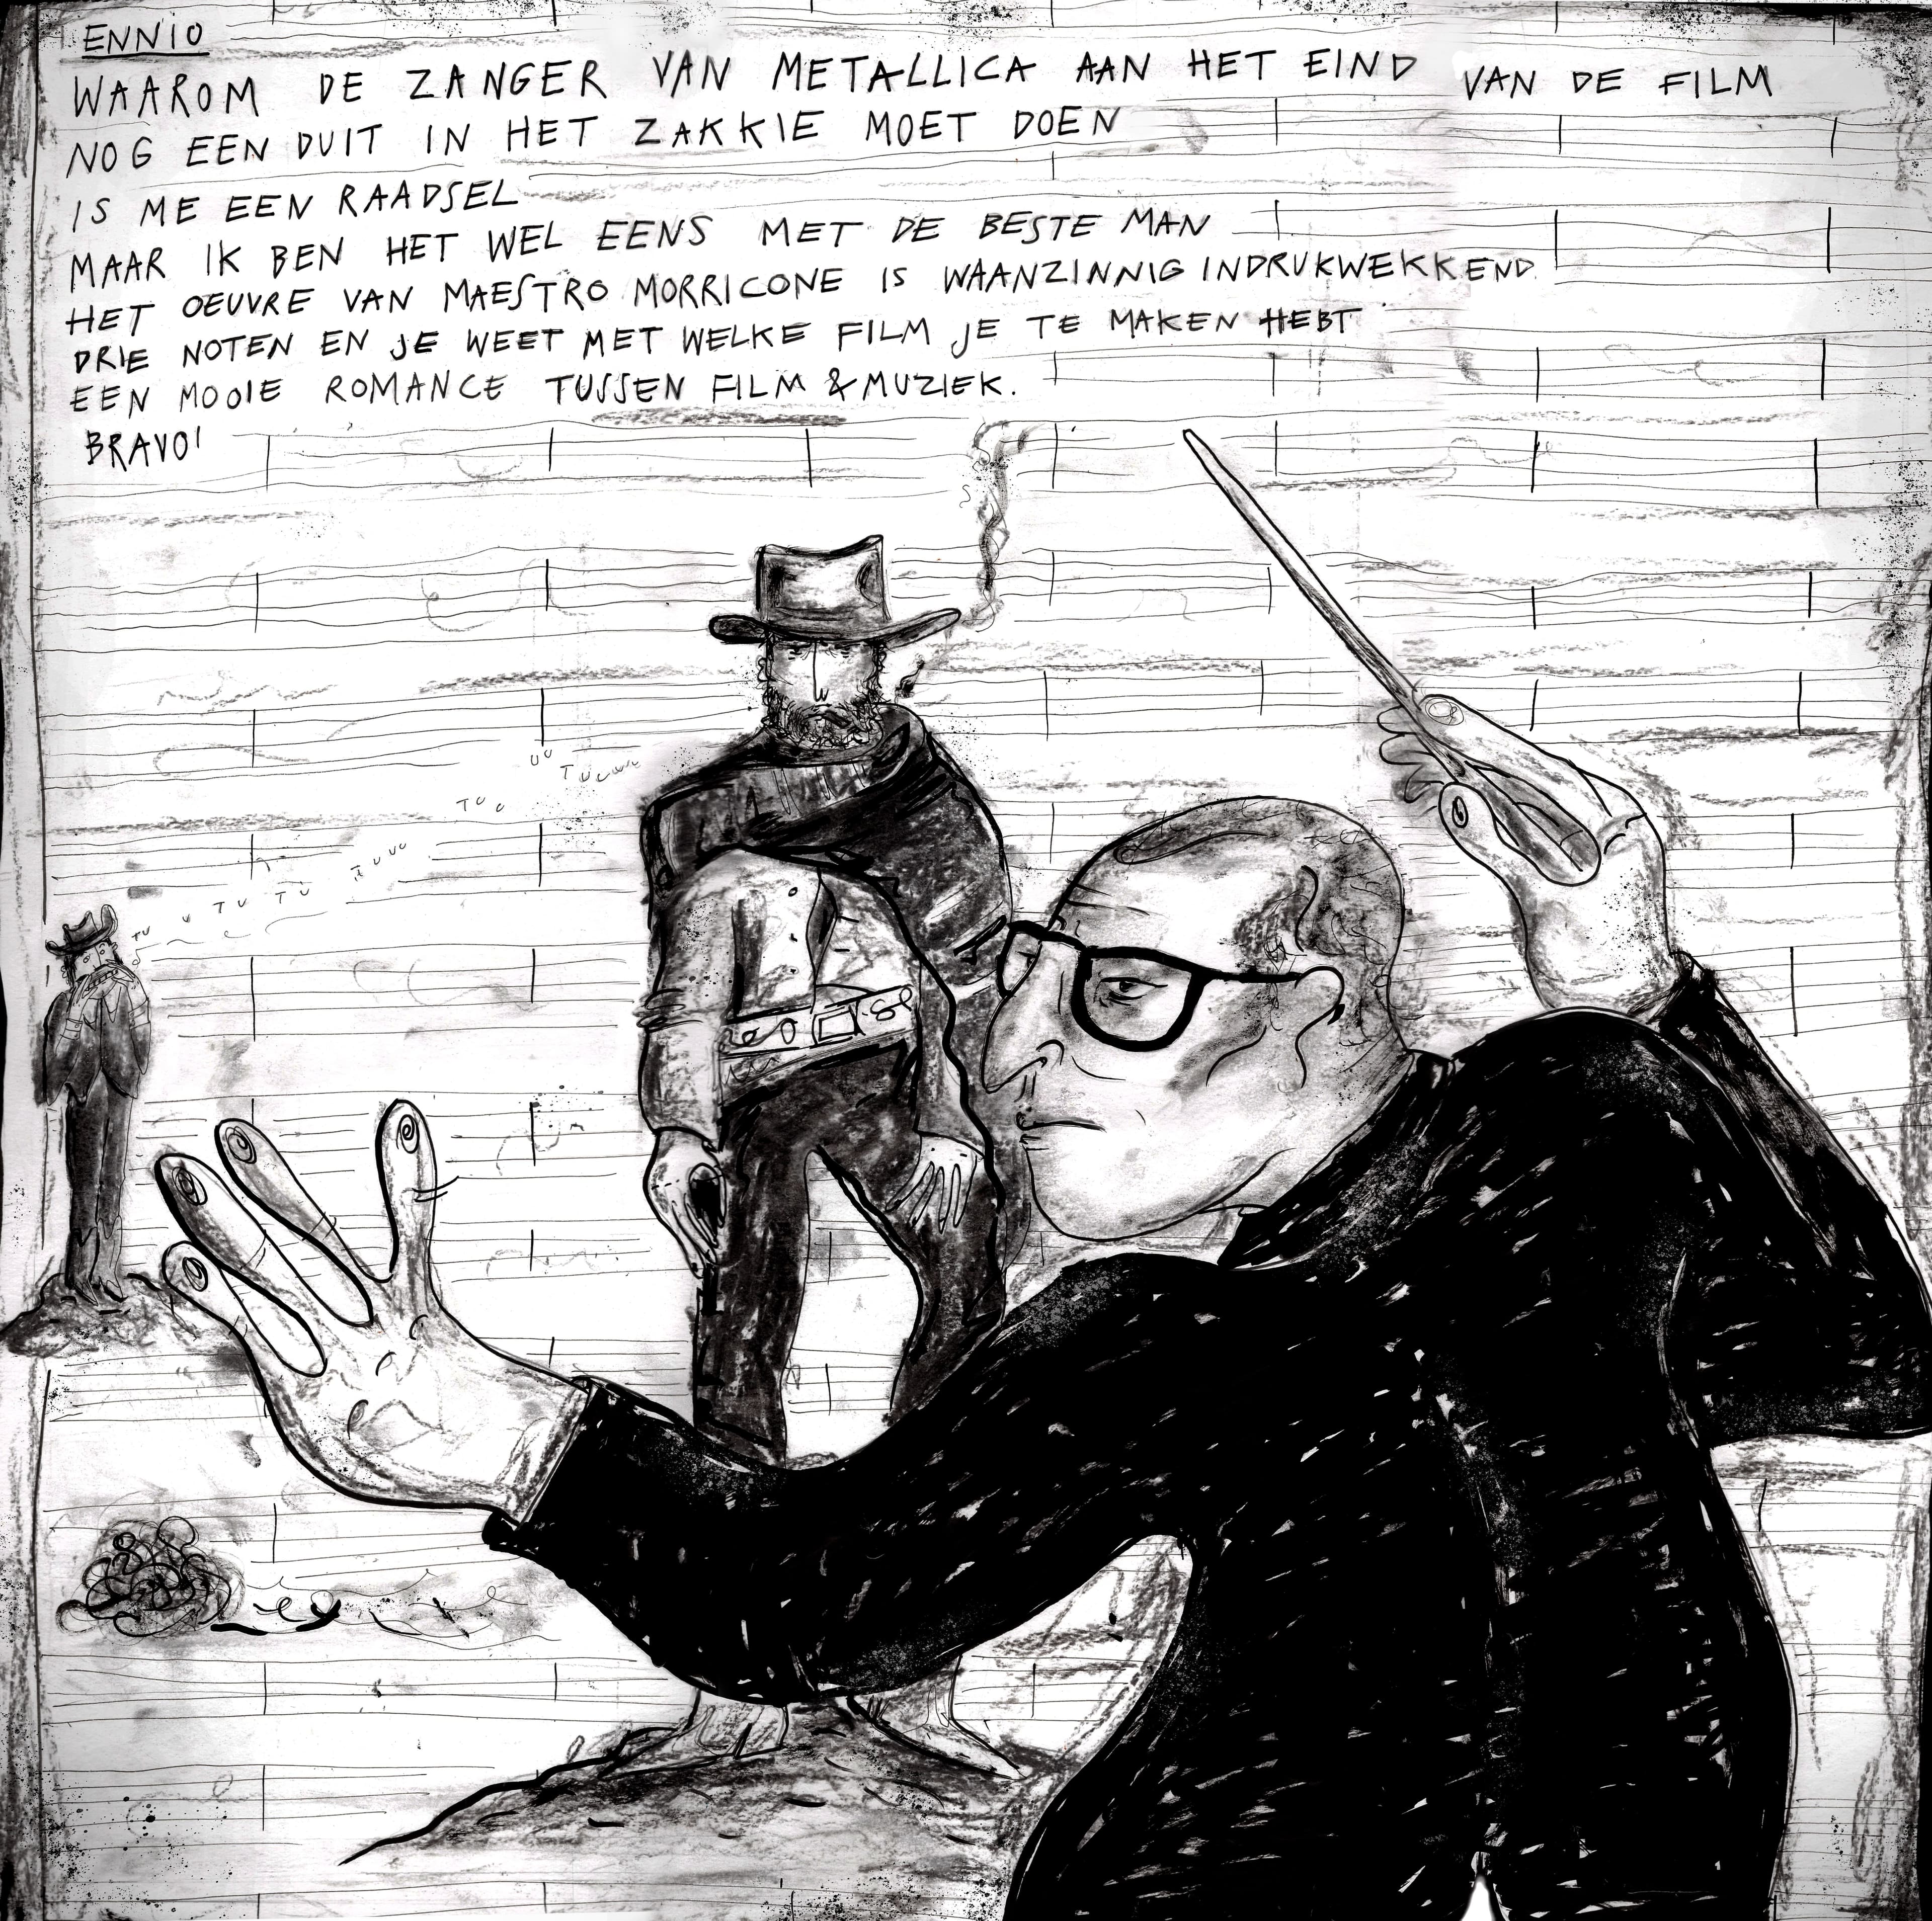 ENNIO
WAAROM DE ZANGER VAN METALLICA AAN HET EIND VAN DE FILM
NOG EEN DUIT IN HET ZAKKIE MOET DOEN
IS ME EEN RAADSEL
MAAR IK BEN HET WEL EENS MET DE BESTE MAN
HET OEUVRE VAN MAESTRO MORRICONE IS WAANZINNIG INDRUKWEKKEND.
DRIE NOTEN EN JE WEET MET WELKE FILM JE TE MAKEN HEBT
EEN MOOIE ROMANCE TUSSEN FILM & MUZIEK.
BRAVO!
TU U TU TU TUUU TUU UU TUUUU